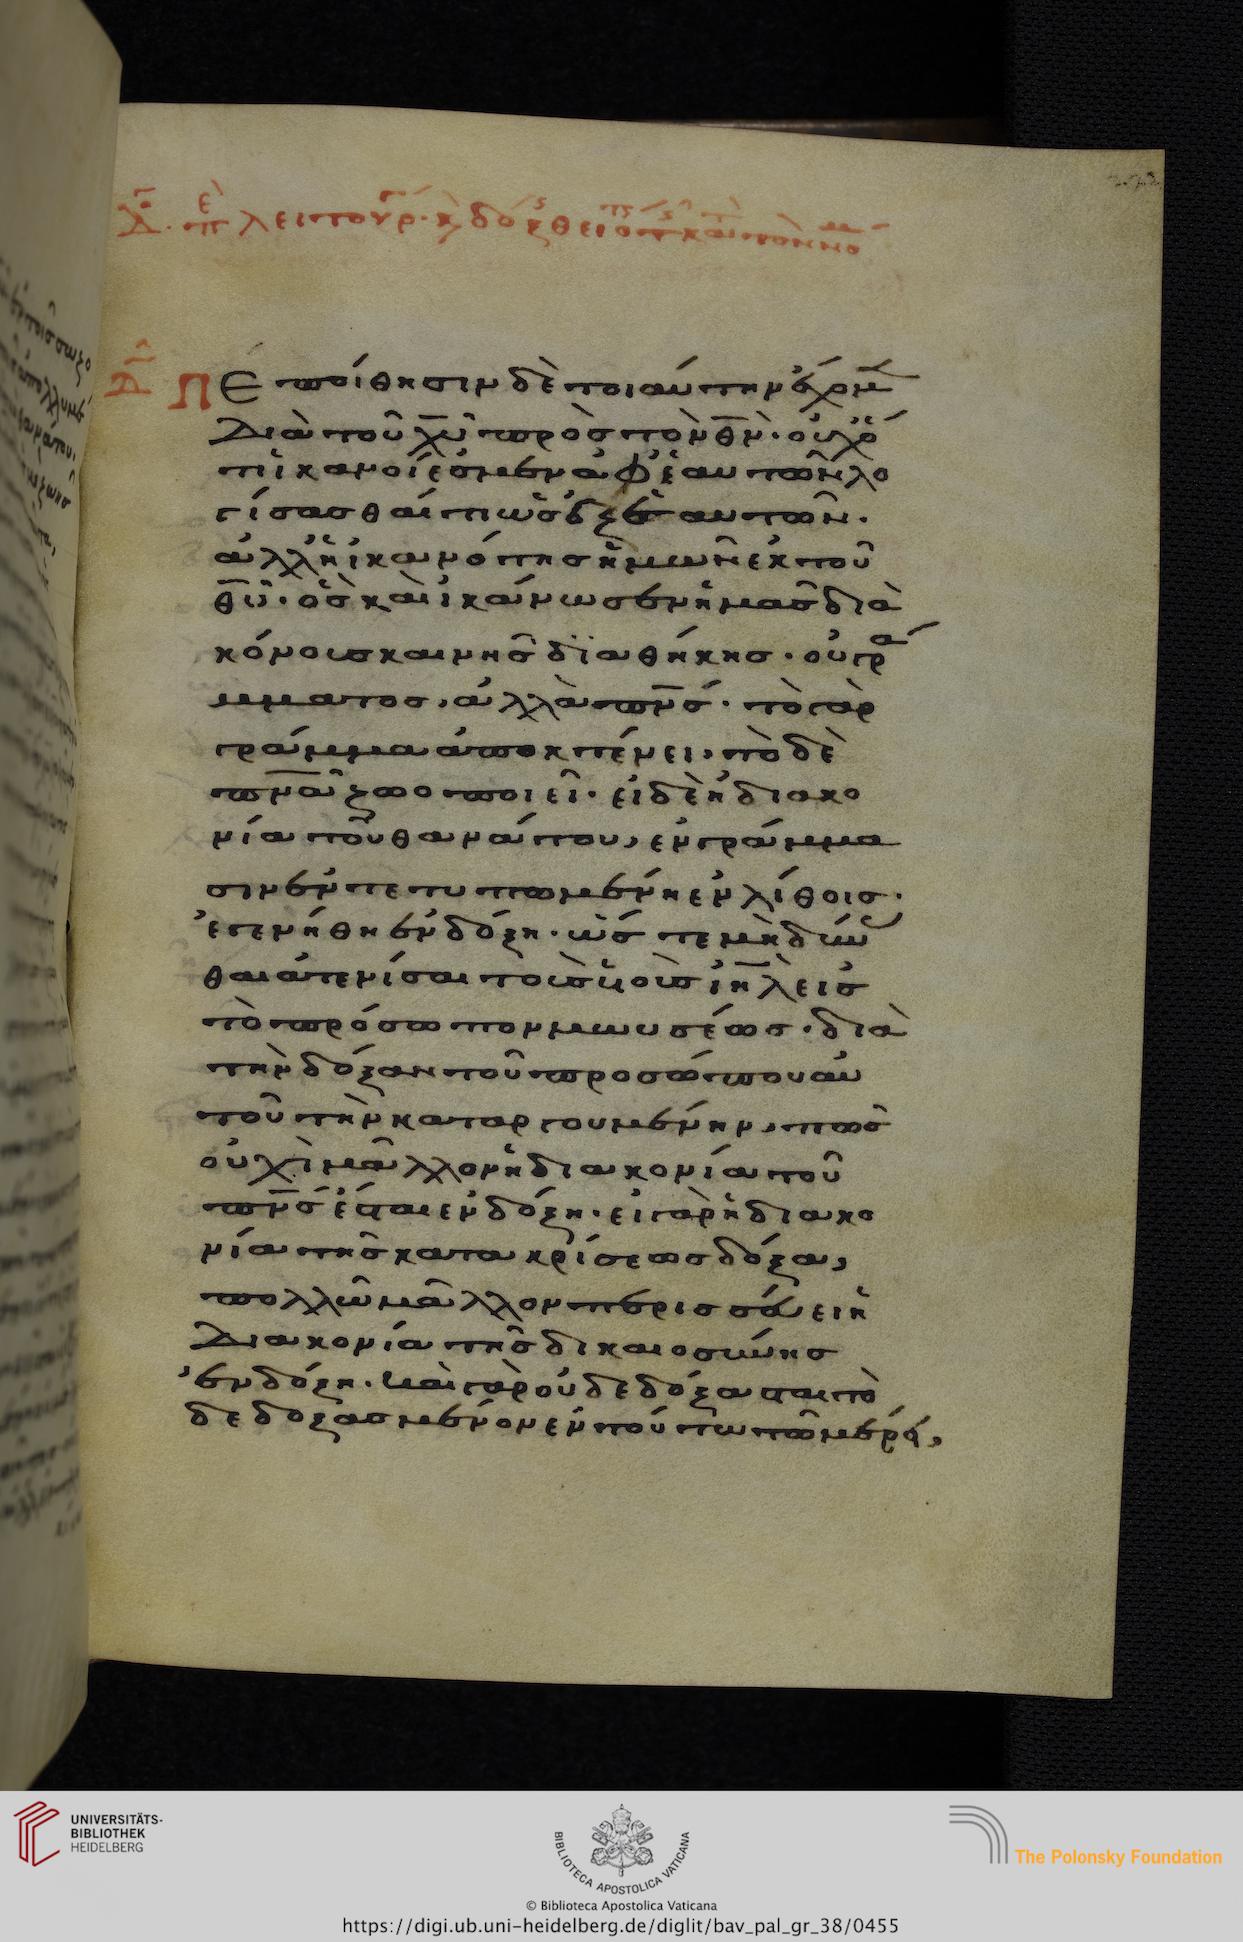 Πεποίθησιν δὲ τοιαύτην ἔχομ
διὰ τοῦ χ̅υ̅ πρὸς τὸν θ̅ν̅· οὐχ ὅ
τι ἱκανοί ἐσμεν ἀφ' ἑαυτῶν λο
γίσασθαί τι ὡς ἐξ ἑαυτῶν·
ἀλλ' ἡ ἱκανότης ἡμῶν ἐκ τοῦ
θ̅υ̅· ὃς καὶ ἱκάνωσεν ἡμᾶς δια
κόνους καινῆς διαθήκης· οὐ γρά
μματος, ἀλλὰ π̅ν̅ς̅· τὸ γὰρ
γράμμα ἀποκτένει, τὸ δὲ
π̅ν̅α̅ ζωοποιεῖ· εἰ δὲ ἡ διακο
νία τοῦ θανάτου, ἐν γράμμα
σιν ἐντετυπωμένη ἐν λίθοις·
ἐγενήθη ἐν δόξῃ· ὥστε μὴ δύν
θαι ἀτενίσαι τοὺς υἱοὺς ι̅η̅λ̅ εἰς
τὸ πρόσωπον μωυσέως· διὰ
τὴν δόξαν τοῦ προσώπου αὐ
τοῦ τὴν καταργουμένην, πῶς
οὐχὶ μᾶλλον ἡ διακονία τοῦ
π̅ν̅ς̅ ἔσται ἐν δόξῃ· εἰ γὰρ ἡ διακο
νία τῆς κατακρίσεως δόξα,
πολλῶ μᾶλλον περισσεύει ἡ
διακονία τῆς δικαιοσύνης
ἐν δόξῃ· καὶ γὰρ οὐ δεδόξασται τὸ
δεδοξασμένον ἐν τούτω τῶ μέρει,
UNIVERSITÄTS-
BIBLIOTHEK
HEIDELBERG
BIBLIOTECA APOSTOLICA VATICANA
The Polonsky Foundation
© Biblioteca Apostolica Vaticana
https://digi.ub.uni-heidelberg.de/diglit/bav_pal_gr_38/0455